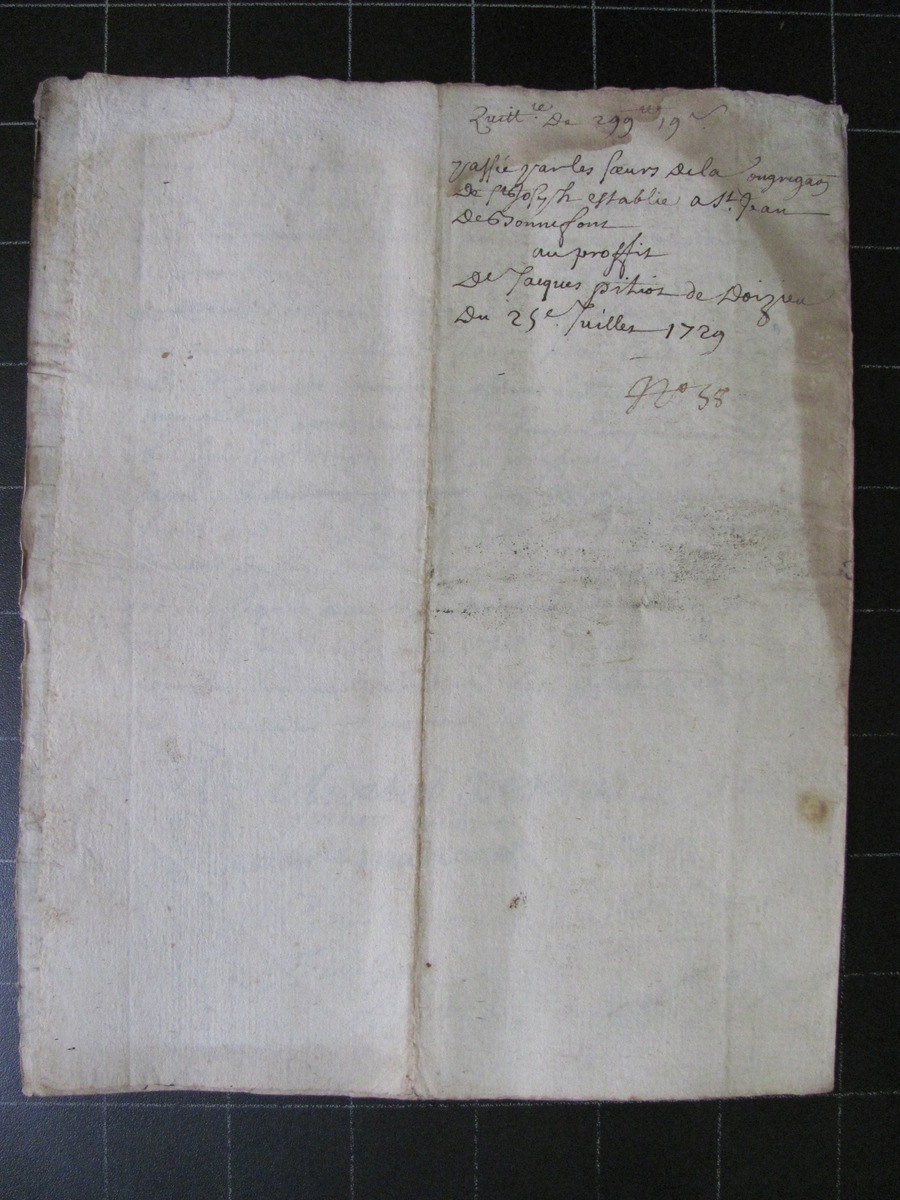 Quitt.ce De 299ᵗᵗ 19ˢ
passée par les sœurs de la Congrega͠on
De Sᵗ Joseph establie a St. Jean
De Bonnefont
au proffit
De Jacques pitiot de Doizieu
Du 25e Juillet 1729
No 58